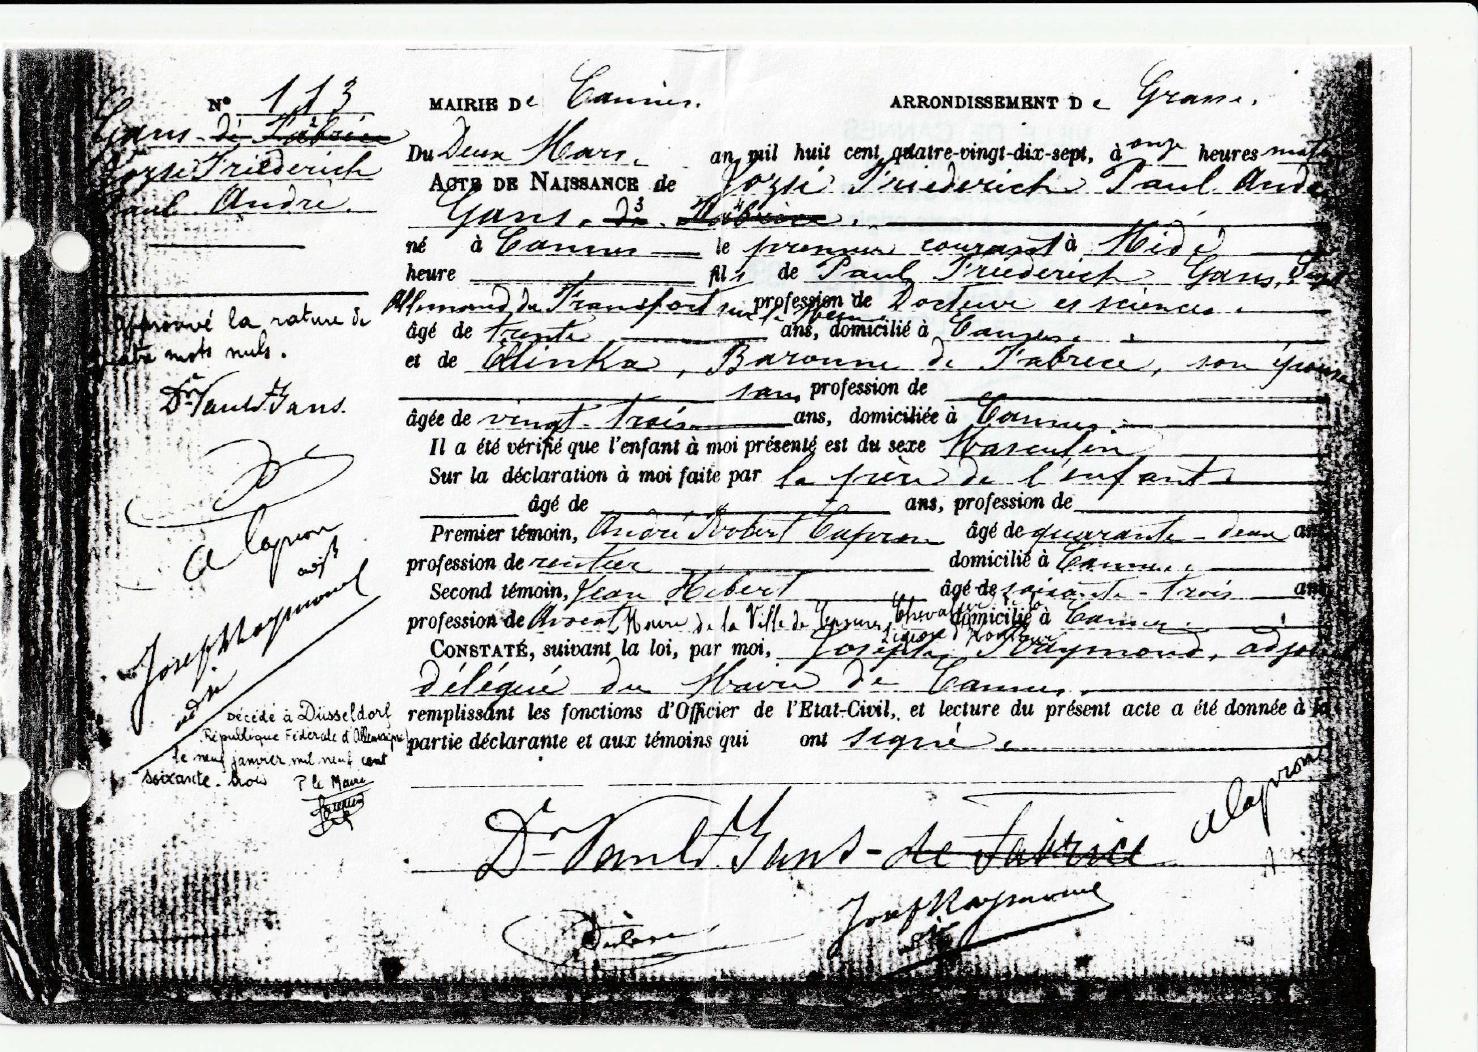 N° 113
Gans de Fabrice
Jozsi Friederich
Paul André.
approuvé la rature de
quatre mots nuls.
Dr Paul F Gans.
a Capron
adjt
Joseph Raymond
adj
décédé à Düsseldorf
République Fédérale d'Allemagne
le neuf janvier mil neuf cent
soixante-trois P le Maire
MAIRIE De Cannes. ARRONDISSEMENT De Grasse.
Du Deux Mars, an mil huit cent quatre-vingt-dix-sept, à onze heures matin
ACTE DE NAISSANCE de Jozsi Friederich Paul André
Gans, de Fabrice.
né à Cannes le premier courant à Midi
heure fils de Paul Friederich Gans,
Allemand, du profession de Docteur es sciences.
âgé de trente ans, domicilié à Cannes.
et de Ellinka, Baronne de Fabrice, son épouse
sans profession de
âgée de vingt-trois ans, domiciliée à Cannes.
Il a été vérifié que l'enfant à moi présenté est du sexe Masculin
Sur la déclaration à moi faite par le père de l'enfant.
âgé de ans, profession de
Premier témoin, André Robert Capron âgé de quarante-deux ans
profession de rentier domicilié à Cannes.
Second témoin, Jean Hibert âgé de soixante-trois ans
profession de Avocat, Maire de la Ville de Cannes, Chevalier de la Légion d'honneur domicilié à Cannes.
CONSTATÉ, suivant la loi, par moi, Joseph Raymond, adjoint
délégué du Maire de Cannes.
remplissant les fonctions d'Officier de l'Etat-Civil, et lecture du présent acte a été donnée à la
partie déclarante et aux témoins qui ont signé.
Dr Paul F Gans-de Fabrice
a Capron
Joseph Raymond